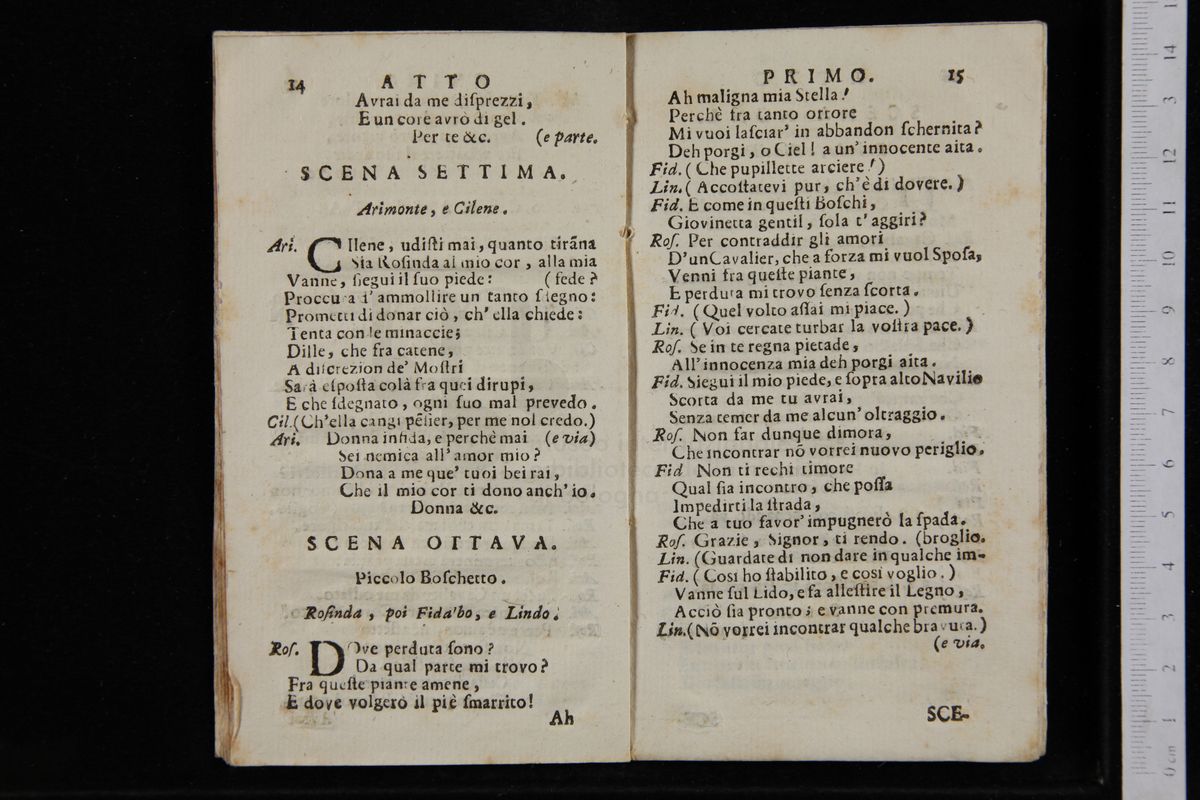 14 ATTO
Avrai da me diſprezzi,
E un core avrò di gel.
Per te &c. (e parte.
SCENA SETTIMA.
Arimonte, e Cilene.
Ari. CIlene, udiſti mai, quanto tirãna
Sia Roſinda al mio cor, alla mia
Vanne, ſiegui il ſuo piede: (fede?
Proccura d'ammollire un tanto ſdegno:
Prometti di donar ciò, ch'ella chiede:
Tenta con le minaccie;
Dille, che fra catene,
A diſcrezion de' Moſtri
Sarà eſpoſta colà fra quei dirupi,
E che ſdegnato, ogni ſuo mal prevedo.
Cil. (Ch'ella cangi pẽſier, per me nol credo.)
Ari. Donna infida, e perchè mai (e via)
Sei nemica all'amor mio?
Dona a me que' tuoi bei rai,
Che il mio cor ti dono anch'io.
Donna &c.
SCENA OTTAVA.
Piccolo Boſchetto.
Roſinda, poi Fidalbo, e Lindo.
Roſ. DOve perduta ſono?
Da qual parte mi trovo?
Fra queſte piante amene,
E dove volgerò il piè ſmarrito!
Ah
PRIMO. 15
Ah maligna mia Stella!
Perchè fra tanto orrore
Mi vuoi laſciar' in abbandon ſchernita?
Deh porgi, o Ciel! a un'innocente aita.
Fid. (Che pupillette arciere!)
Lin. (Accoſtatevi pur, ch'è di dovere.)
Fid. E come in queſti Boſchi,
Giovinetta gentil, ſola t'aggiri?
Roſ. Per contraddir gli amori
D'unCavalier, che a forza mi vuol Spoſa,
Venni fra queſte piante,
E perduta mi trovo ſenza ſcorta.
Fid. (Quel volto aſſai mi piace.)
Lin. (Voi cercate turbar la voſtra pace.)
Roſ. Se in te regna pietade,
All'innocenza mia deh porgi aita.
Fid. Siegui il mio piede, e ſopra alto Navilio
Scorta da me tu avrai,
Senza temer da me alcun'oltraggio.
Roſ. Non far dunque dimora,
Che incontrar nõ vorrei nuovo periglio.
Fid Non ti rechi timore
Qual ſia incontro, che poſſa
Impedirti la ſtrada,
Che a tuo favor'impugnerò la ſpada.
Roſ. Grazie, Signor, ti rendo. (broglio.
Lin. (Guardate di non dare in qualche im-
Fid. (Così ho ſtabilito, e così voglio.)
Vanne ſul Lido, e fa alleſtire il Legno,
Acciò ſia pronto; e vanne con premura.
Lin. (Nõ vorrei incontrar qualche bravura.)
(e via.
SCE-
0 cm 1 2 3 4 5 6 7 8 9 10 11 12 13 14